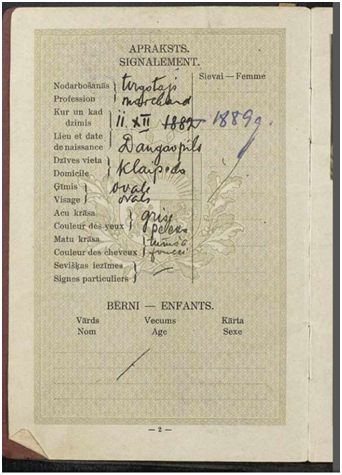 APRAKSTS.
SIGNALEMENT.
Sievai — Femme
Nodarbošanās } tirgotājs
Profession marchand
Kur un kad
dzimis } 11. XII 1882 1889 g.
Lieu et date
de naissance } Daugavpils
Dzīves vieta } Klaipeda
Domicile
Ģīmis } ovals
Visage ovale
Acu krāsa } grise
Couleur des yeux pelēks
Matu krāsa } tumša
Couleur des cheveux foncé
Sevišķas iezīmes } —
Signes particuliers
BĒRNI — ENFANTS.
Vārds Vecums Kārta
Nom Age Sexe
— 2 —